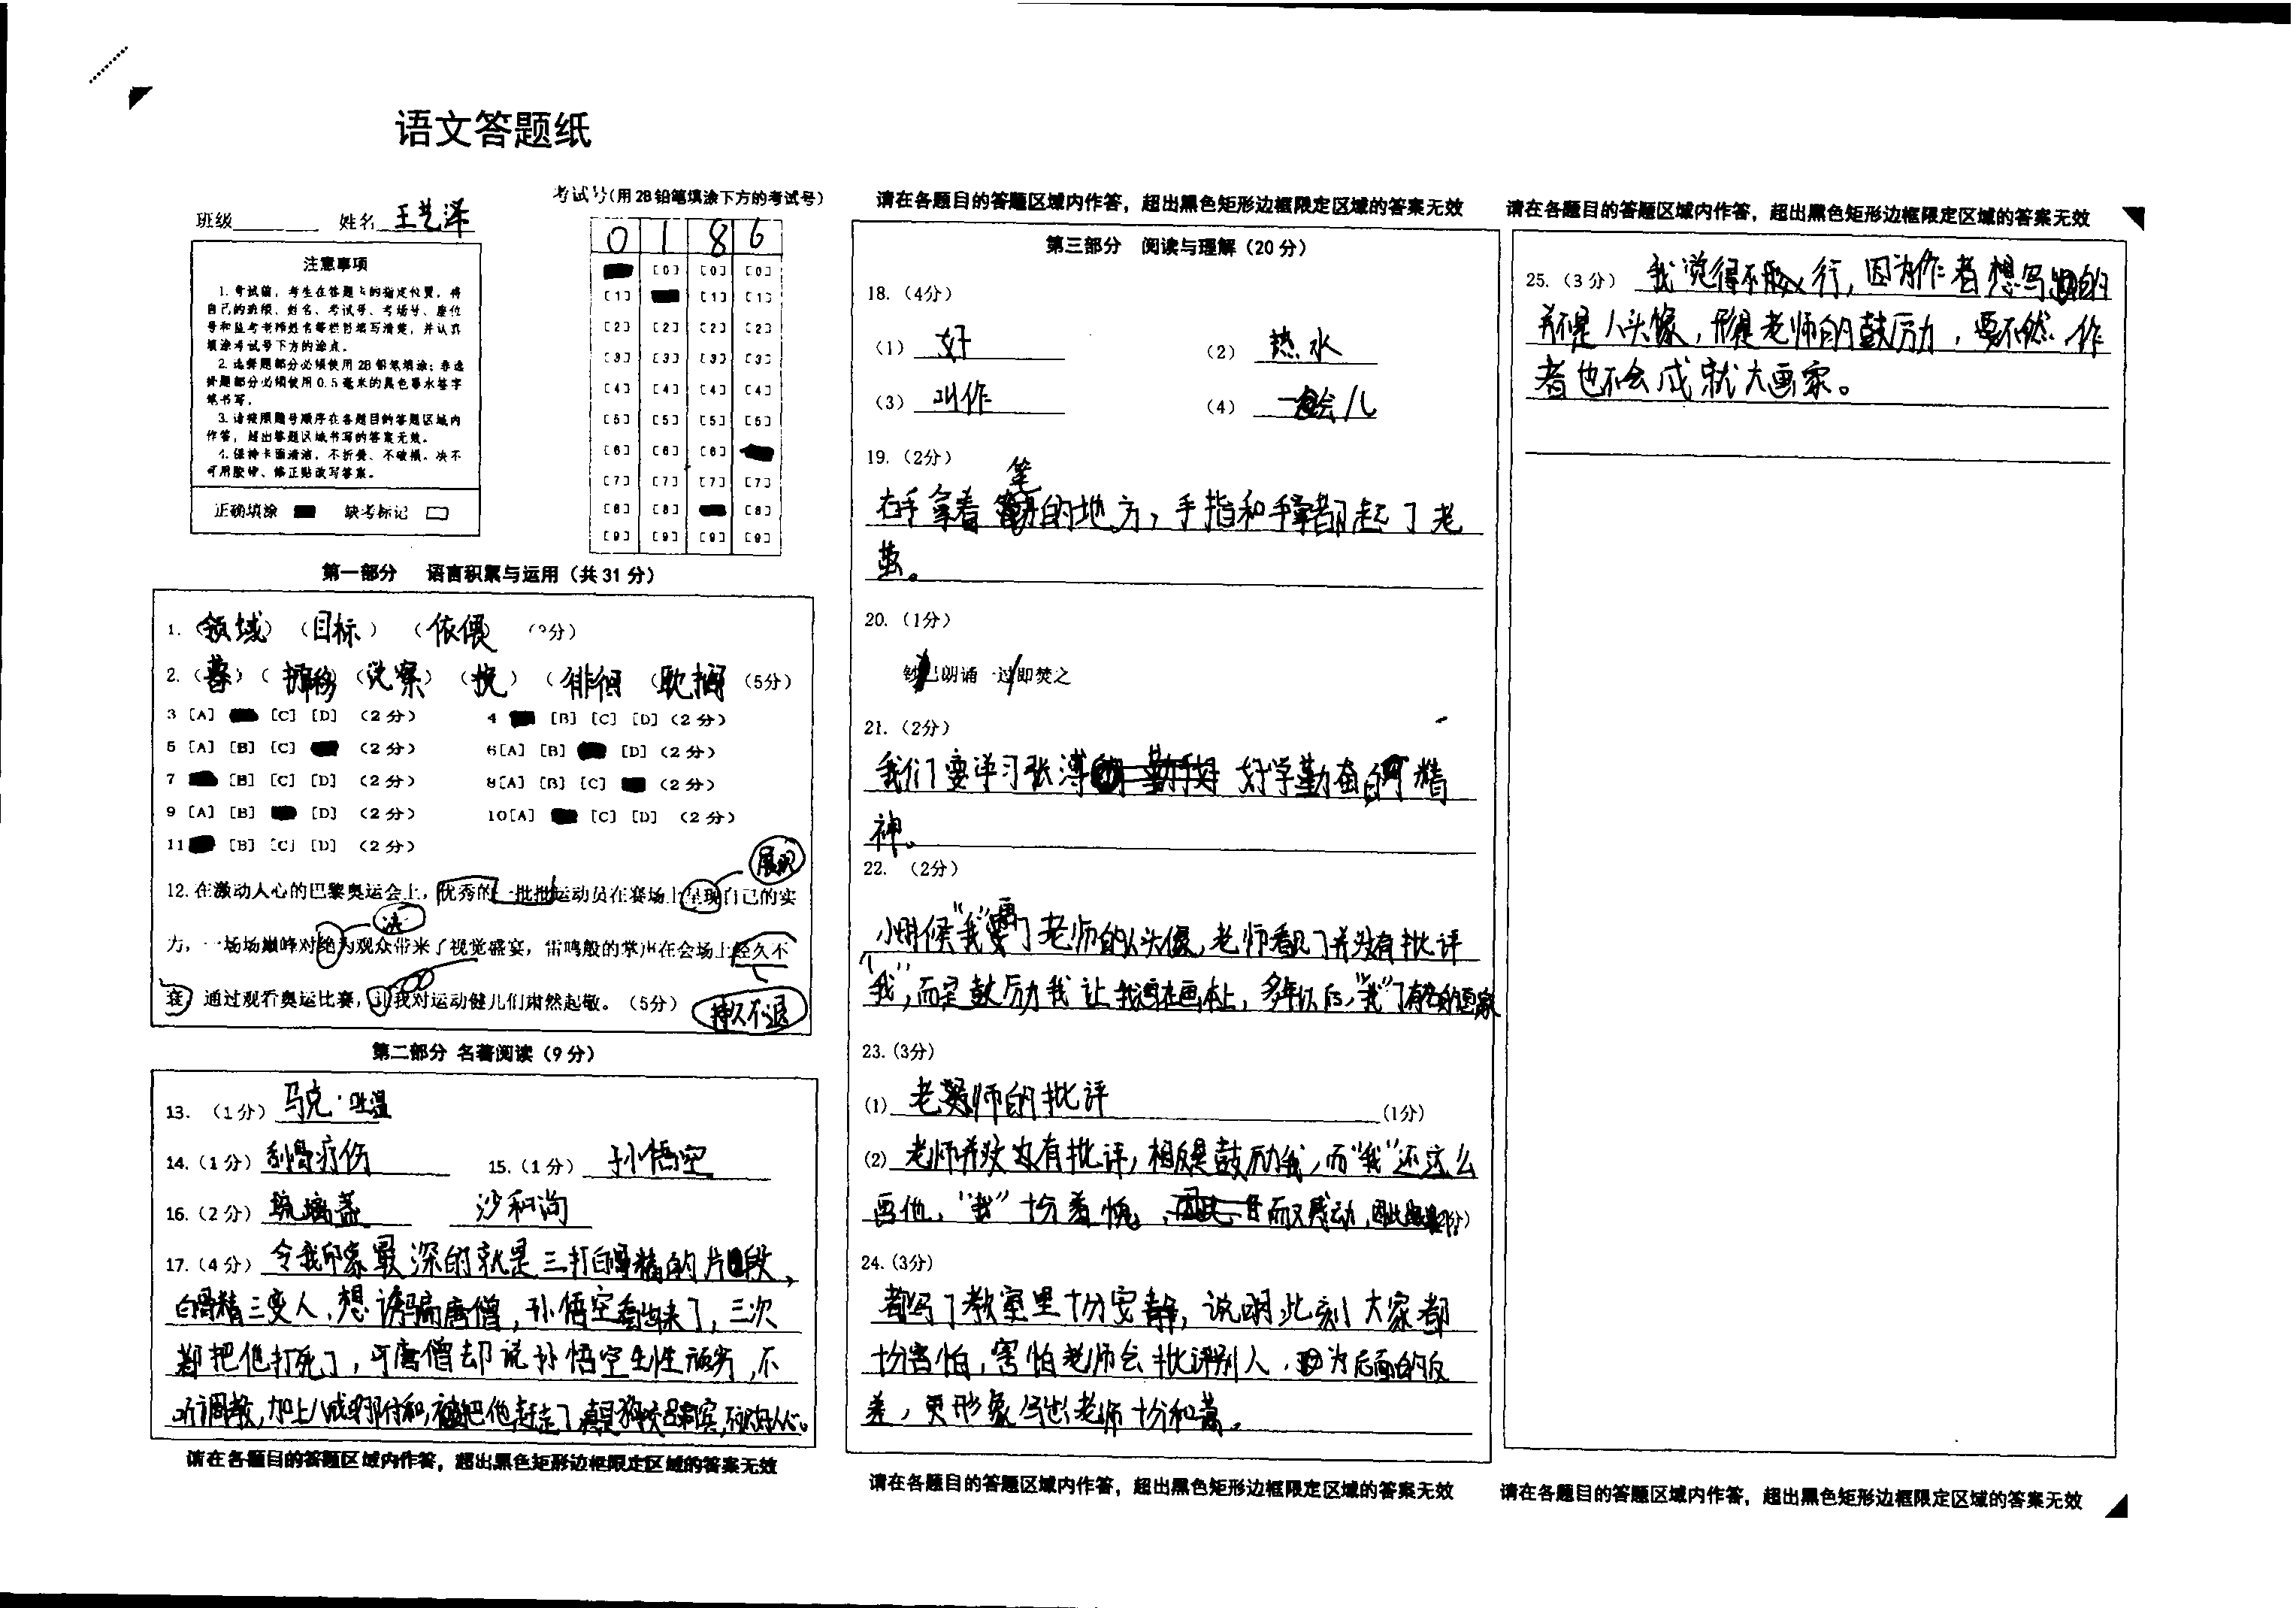 语文答题纸
班级 姓名 王艺泽
考试号(用2B铅笔填涂下方的考试号)
0 1 8 6
注意事项
1. 考试前，考生在答题卡的指定位置，将
自己的班级、姓名、考试号、考场号、座位
号和监考老师姓名等栏目填写清楚，并认真
填涂考试号下方的涂点。
2. 选择题部分必须使用2B铅笔填涂；非选
择题部分必须使用0.5毫米的黑色墨水签字
笔书写。
3. 请按照题号顺序在各题目的答题区域内
作答，超出答题区域书写的答案无效。
4. 保持卡面清洁，不折叠、不破损。决不
可用胶带、修正贴改写答案。
正确填涂 缺考标记
[0] [0] [0]
[1] [1] [1]
[2] [2] [2] [2]
[3] [3] [3] [3]
[4] [4] [4] [4]
[5] [5] [5] [5]
[6] [6] [6]
[7] [7] [7] [7]
[8] [8] [8]
[9] [9] [9] [9]
第一部分 语言积累与运用（共31分）
1.（领域）（目标）（依偎）
2.（暮）（挪移）（ 察）（ ）（徘徊 耽搁（5分）
3 [A] [C] [D] （2分） 4 [B] [C] [D]（2分）
5 [A] [B] [C] （2分） 6[A] [B] [D]（2分）
7 [B] [C] [D] （2分） 8[A] [B] [C] （2分）
9 [A] [B] [D] （2分） 10[A] [C] [D] （2分）
11 [B] [C] [D] （2分）
展现
12. 在激动人心的巴黎奥运会上，优秀的一批批运动员在赛场上呈现自己的实
决
力，一场场巅峰对绝为观众带来了视觉盛宴，雷鸣般的掌声在会场上经久不
衰 通过观看奥运比赛，让我对运动健儿们肃然起敬。（5分） 持久不退
第二部分 名著阅读（9分）
13. （1分） 马克·吐温
14.（1分） 刮骨疗伤 15.（1分） 孙悟空
16.（2分） 琉璃盏 沙和尚
17.（4分） 令我印象最深的就是三打白骨精的片段，
白骨精三变人，想诱骗唐僧，孙悟空看出来了，三次
都把他打死了，可唐僧却说孙悟空生性顽劣，不
听调教，加上八戒 附和，被 把他赶走了 真是狗咬吕洞宾，不识好人心。
请在各题目的答题区域内作答，超出黑色矩形边框限定区域的答案无效
请在各题目的答题区域内作答，超出黑色矩形边框限定区域的答案无效
第三部分 阅读与理解（20分）
18.（4分）
（1） 好 （2） 热水
（3） 叫作 （4） 一会儿
19.（2分）
笔
右手拿着 的地方，手指和手掌都起了老
茧。
20.（1分）
钞已朗诵一过即焚之
21.（2分）
我们要学习张溥 好学勤奋的 精
神。
22. （2分）
小时候“我”画了老师的人头像，老师看见了并没有批评
“我”，而是鼓励我让我画在画本上，多年以后，“我” 了有名的画家
23.（3分）
(1) 老 师的批评 （1分）
(2) 老师并没有批评，相反是鼓励我，而“我”还这么
画他，“我”十分羞愧， 而又感动，因此
24.（3分）
都写了教室里十分安静，说明此刻大家都
十分害怕，害怕老师会批评别人，因为后面的反
差，更形象写出老师十分和蔼。
请在各题目的答题区域内作答，超出黑色矩形边框限定区域的答案无效
请在各题目的答题区域内作答，超出黑色矩形边框限定区域的答案无效
25.（3分） 我觉得不 行，因为作者想写 的
并不是人头像，而是老师的鼓励，要不然 作
者也不会成就大画家。
请在各题目的答题区域内作答，超出黑色矩形边框限定区域的答案无效